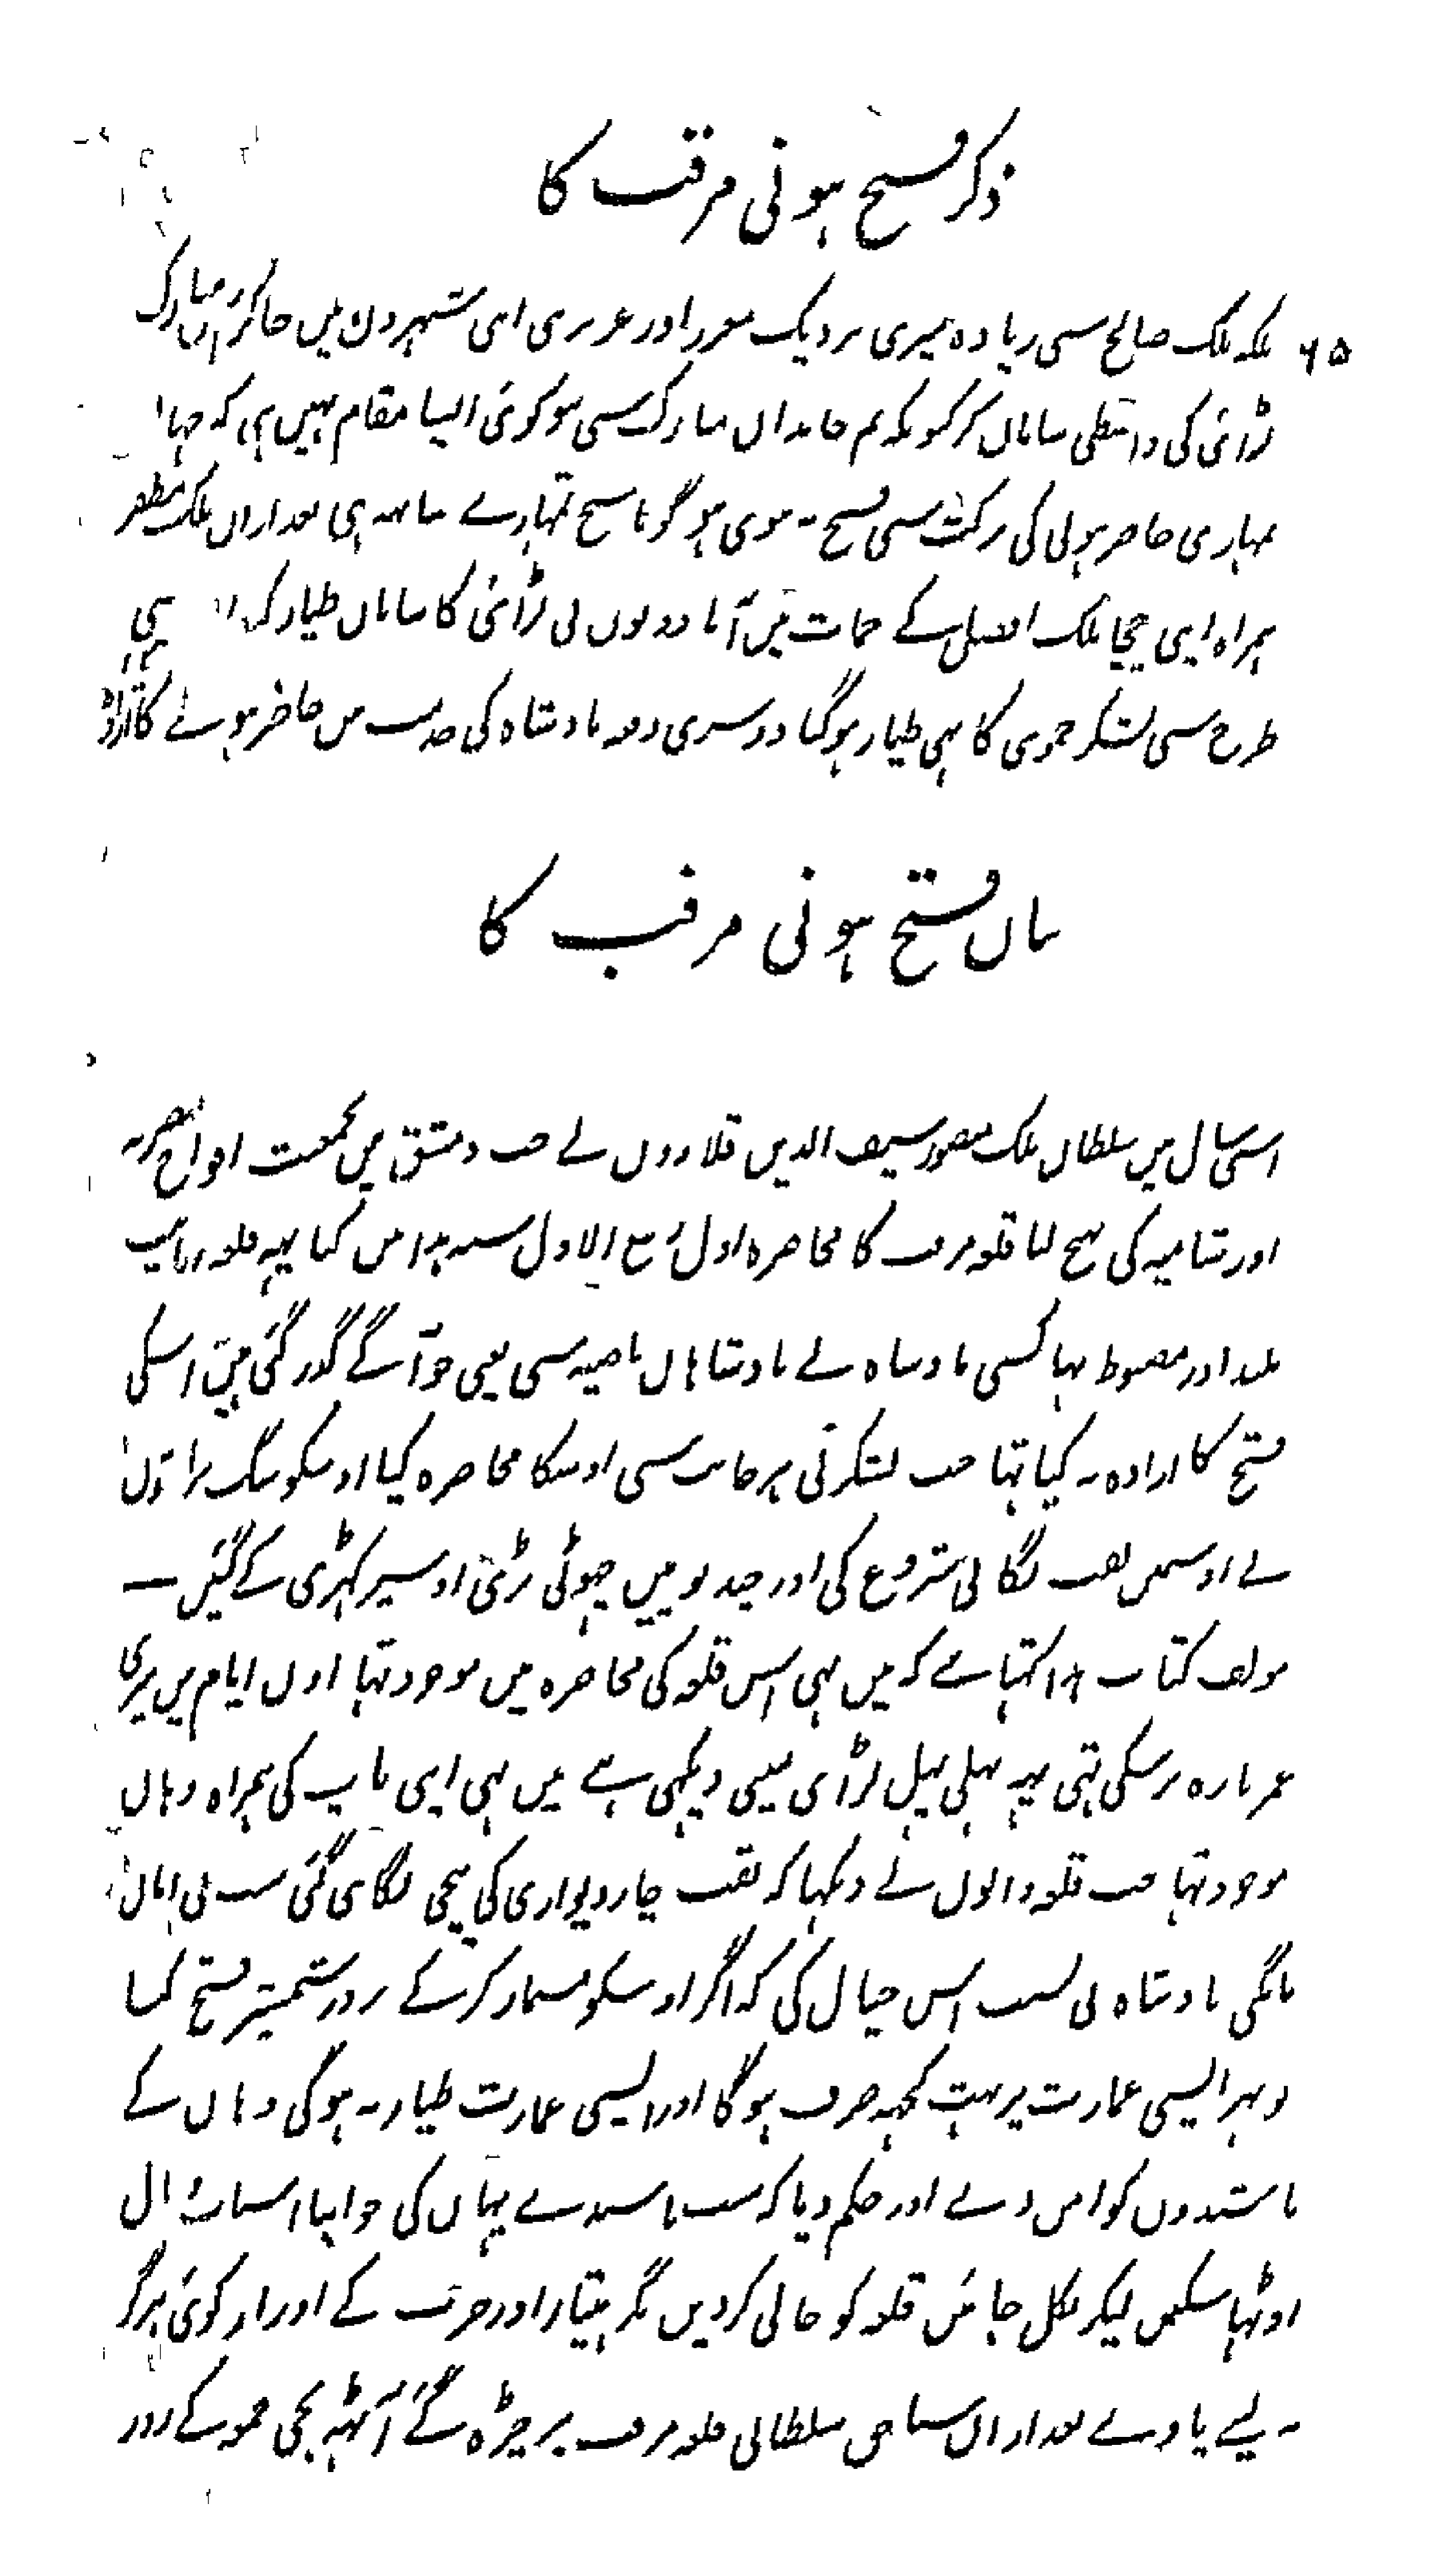 ذکر فتح ہونی مرقب کا
۶۵ بلکہ ملک صالح سی زیادہ میری نزدیک معزز اور عزیز ہی اپنی شہروں میں جاکر اس مبارک
لڑائی کی واسطی سامان کر کیونکہ تم خاندان مبارک سی ہو کوئی ایسا مقام نہیں ہی کہ جہاں
تمہاری حاضر ہونی کی برکت سی فتح نہ ہوئی ہو گویا فتح تمہارے ساتھ ہی بعد ازاں ملک مظفر
ہمراہ اپنی چچا ملک افضل کے حمات میں آیا دونوں نی لڑائی کا سامان طیار کیا
طرح سی لشکر حموی کا بہی طیار ہوگیا دوسری دفعہ بادشاہ کی خدمت میں حاضر ہونے کا
بیان فتح ہونی مرقب کا
اسی سال میں سلطان ملک منصور سیف الدین قلاووں نے جب دمشق میں بجمعیت افواج مصریہ
اور شامیہ کی پہنچ لیا قلعہ مرقب کا محاصرہ اول ربیع الاول سنہ ہذا میں کیا یہہ قلعہ نہایت
بلند اور مضبوط تہا کسی بادشاہ نے بادشاہان ماضیہ سی یعنی جو آگے گذر گئی ہیں اسکی
فتح کا ارادہ نہ کیا تہا جب لشکر نی ہر جانب سی اوسکا محاصرہ کیا اوسکو سنگ تراشوں
نے اوسمیں نقب لگانی شروع کی اور چند توپیں چہوٹی بڑی اوسپر کہڑی کے گئیں —
مولف کتاب ہذا کہتا ہے کہ میں بہی اس قلعہ کی محاصرہ میں موجود تہا اول ایام میں میری
عمر بارہ برسکی تہی یہہ پہلی پہل لڑائی مینی دیکہی ہے میں بہی اپنی باپ کی ہمراہ وہاں
موجود تہا جب قلعہ والوں نے دیکہا کہ نقب چاردیواری کی نیچی لگائی گئی سب نی امان
مانگی بادشاہ نی بسبب اس خیال کی کہ اگر اوسکو مسمار کرکے بزور شمشیر فتح کیا
تو پہر ایسی عمارت پر بہت کچہہ صرف ہوگا اور ایسی عمارت طیار نہ ہوگی وہاں کے
باشندوں کو امن دے اور حکم دیا کہ سب باشندے یہاں کی جو اپنا اسباب
اوٹہا سکیں لیکر نکل جائیں قلعہ کو خالی کردیں مگر ہتیار اور حرب کے اوزار کوئی ہرگز
نہ لیے پاوے بعد ازاں سناجق سلطانی قلعہ مرقب پر چڑہ گئے آٹہہ بجی جمعہ کے روز